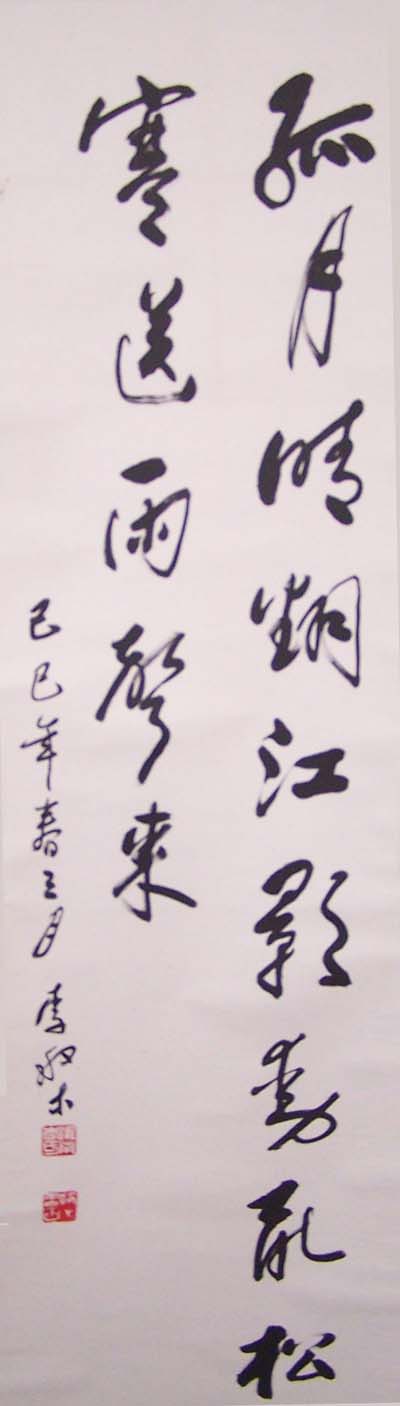 孤月晴翻江影動亂松
寒送雨聲來
己巳年春三月 李